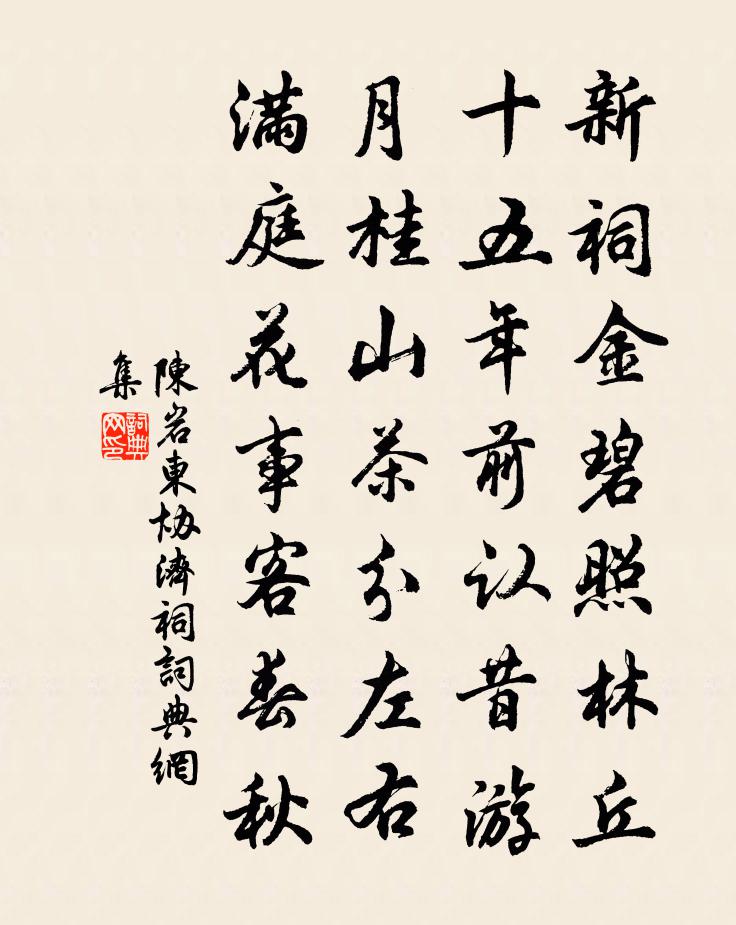 新祠金碧照林丘
十五年前认昔游
月桂山茶分左右
满庭花事客春秋
陳岩東协濟祠詞典網
集
詞典
网印